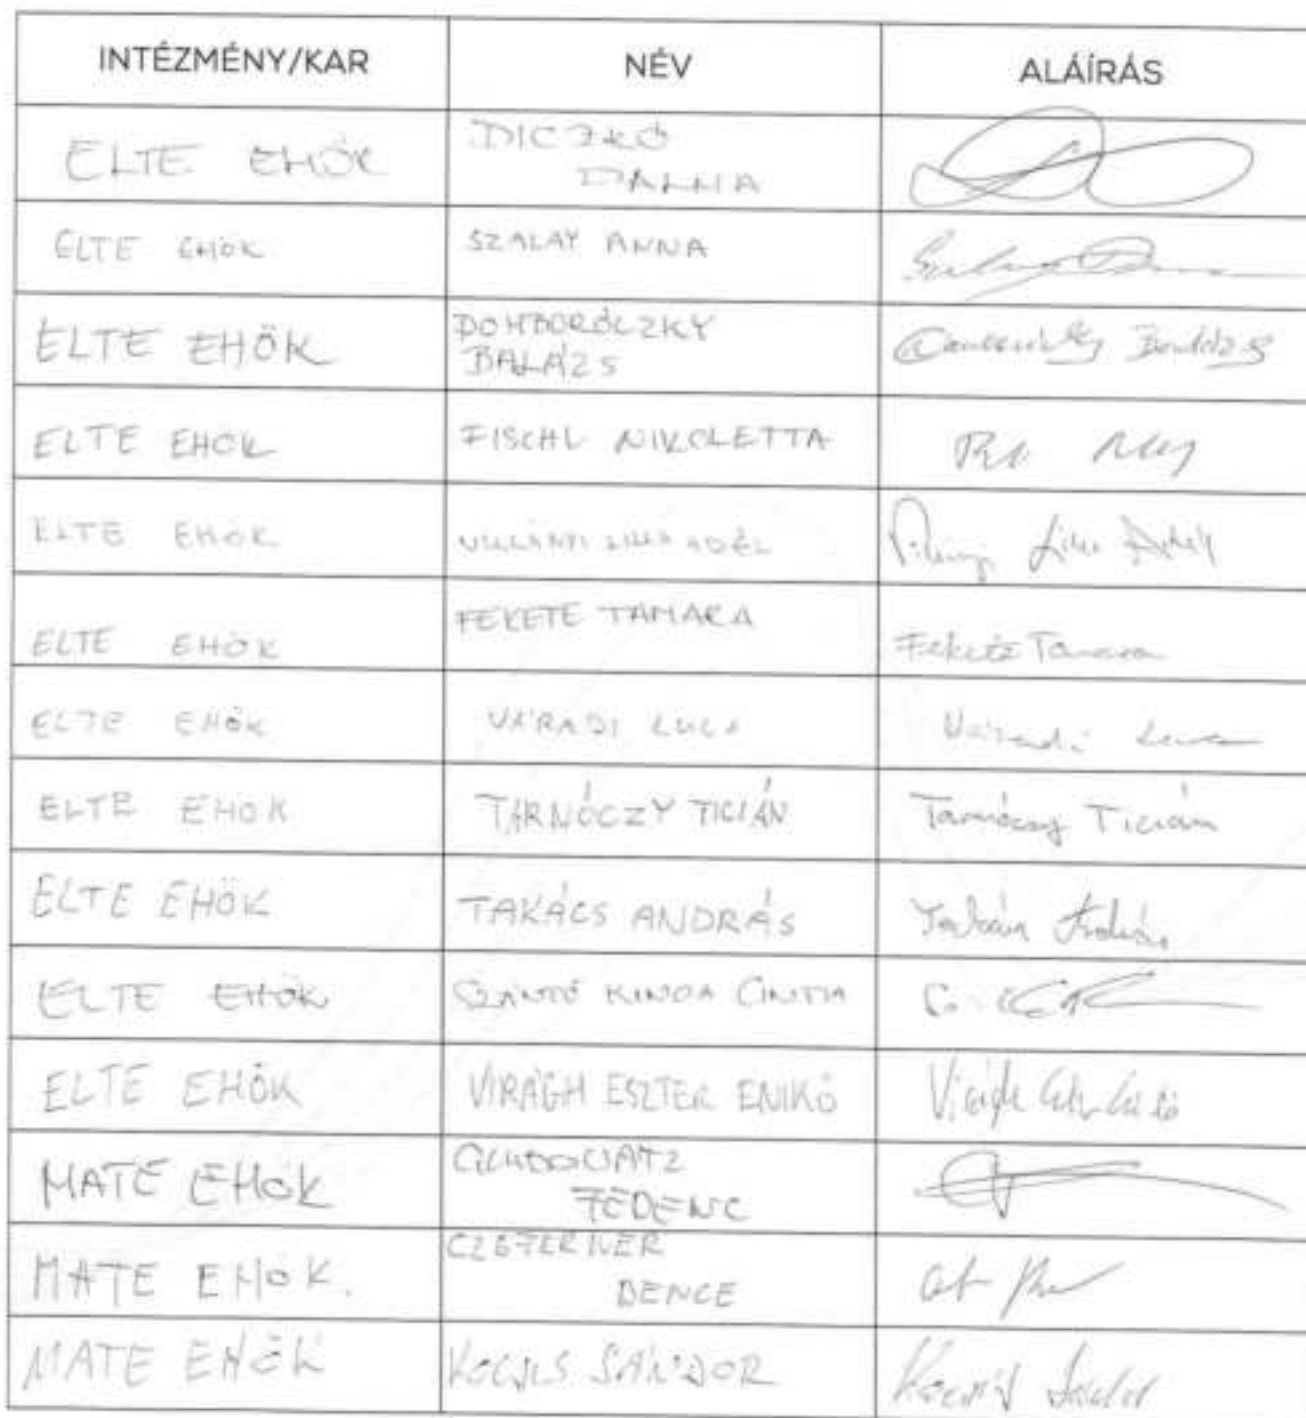 INTÉZMÉNY/KAR NÉV ALÁÍRÁS
ELTE EHÖK DICZKÓ
DALMA
ELTE EHÖK SZALAY ANNA
ELTE EHÖK DOMBORÓCZKY
BALÁZS
ELTE EHÖK FISCHL NIKOLETTA
ELTE EHÖK VILLÁNYI LILLA ADÉL
ELTE EHÖK FEKETE TAMARA Fekete Tamara
ELTE EHÖK VÁRADI LUCA Váradi Luca
ELTE EHÖK TARNÓCZY TICIÁN Tarnóczy Ticián
ELTE EHÖK TAKÁCS ANDRÁS Takács András
ELTE EHÖK SZÁNTÓ KINGA CINTIA
ELTE EHÖK VIRÁGH ESZTER ENIKŐ
MATE EHÖK
MATE EHÖK.
BENCE
MATE EHÖK KOCSIS SÁNDOR Kocsis Sándor